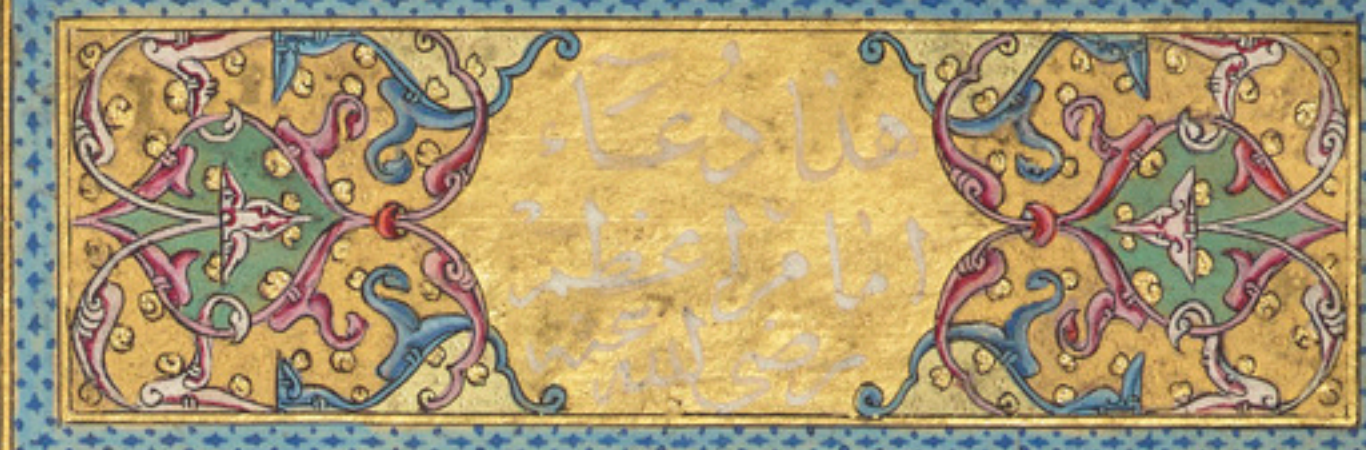 هذا دُعَاء
امام اعظم
رضي الله عنه